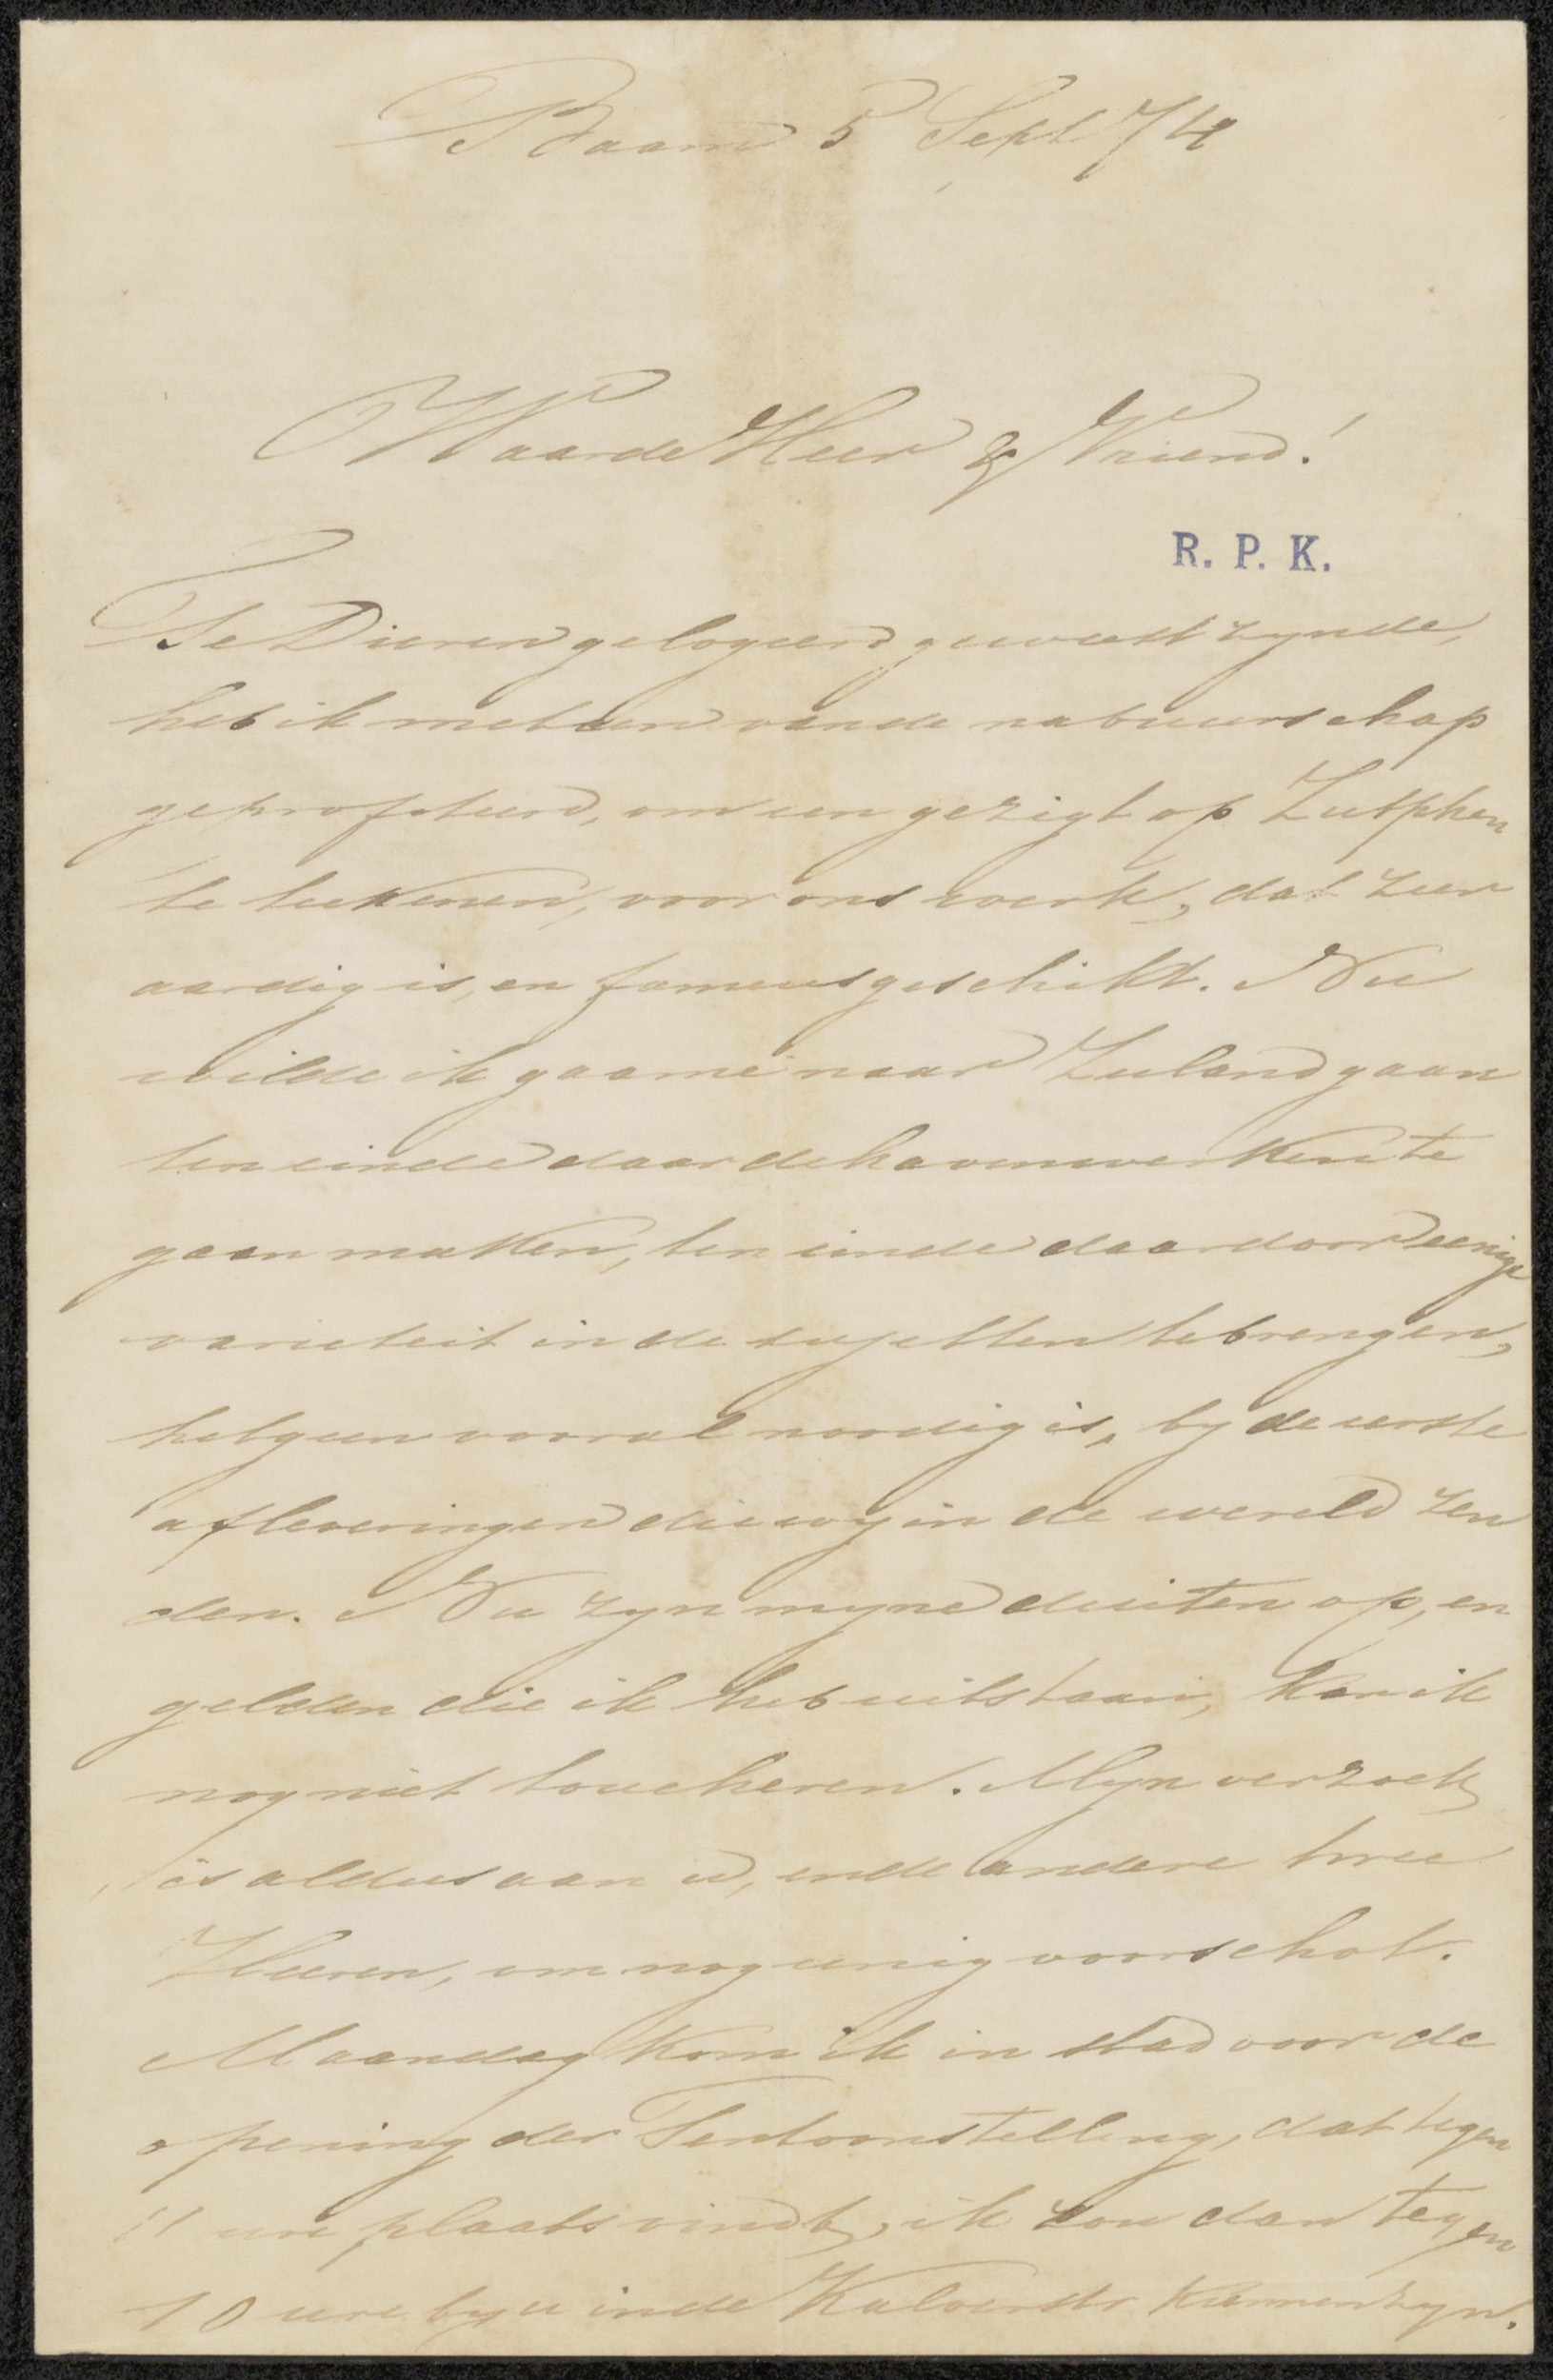 Baarn 5 Sept 74
Waarde Heer & Vriend!
R. P. K.
Te Dieren gelogeerd geweest zynde,
heb ik meteen van de nabuurschap
geprofiteerd, om een gezigt op Zutphen
te teekenen, voor ons werk, dat zeer
aardig is, en fameus geschikt. Nu
wilde ik gaarne naar Zeeland gaan
ten einde daar de havenwerken te
gaan maken, ten einde daardoor eenige
varieteit in de sujetten te brengen,
hetgeen vooral noodig is, by de eerste
afleveringen die wy in de wereld zen
den. Nu zyn myne duiten op, en
gelden die ik heb uitstaan, kan ik
nog niet toucheren. Myn verzoek
is aldus aan u, en de andere twee
Heeren, om nog eenig voorschot.
Maandag kom ik in stad voor de
opening der Tentoonstelling, dat tegen
11 ure plaats vindt, ik zou dan tegen
10 ure by u in de Kalverstr kunnen zyn.